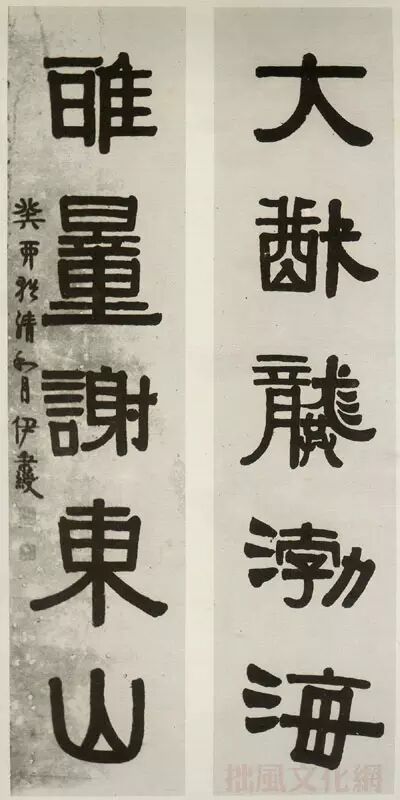 大猷龔渤海
雅量謝東山
癸酉清和月伊秉綬
拙風文化網